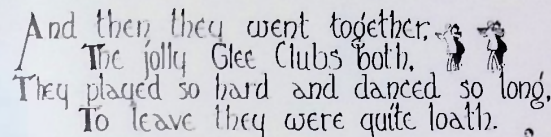 And then they went together,
The jolly Glee Clubs both,
They played so hard and danced so long,
To leave they were quite loath.